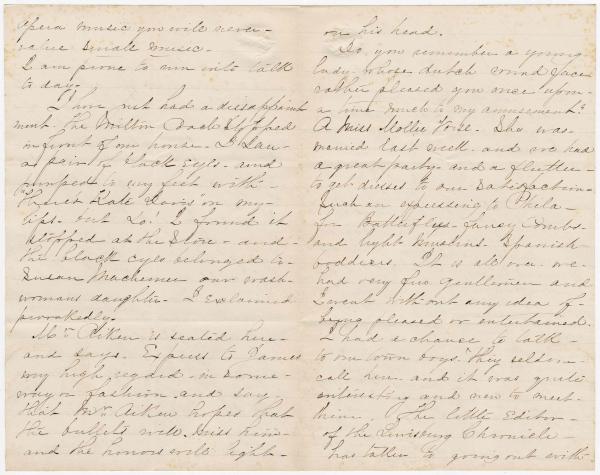 Opera music you will never-
value small music-
I am prone to run into talk
to day.
I have just had a disappoint
ment. The Milton Hack stopped
in front of our house- I saw
a pair of black eyes- and
jumped to my feet with-
"there's Kate Davis" on my
lips- but Lo! I found it
stopped at the Store- and-
the black eyes belonged to
Susan Machemer our wash-
womans daughter- I exclaimed
provokedly-
Mr Aiken is seated here-
and says- Express to James
my high regard- in some-
way or fashion- and say
that Mr Aiken hopes that
the bullets will miss him-
and the honors will light-
on his head.
Do, you remember a young
lady- whose dutch round face
rather pleased you once upon-
a time much to my amusement?
A Miss Mollie . She was-
married last week- and we had
a great party- and a flutter-
to get dresses to our satisfaction-
Such an expressing to Phila-
for Butterflys- fancy Combs-
and light muslins- Spanish
boddices. It is all over- we-
had very few gentlemen and
I went without any idea of-
being pleased or entertained.
I had a chance to talk-
to our town boys." They seldom-
call here- and it was quite
entertaining and new to meet-
them- The little Editor-
of the Lewisburg Chronicle-
has taken to going out with-